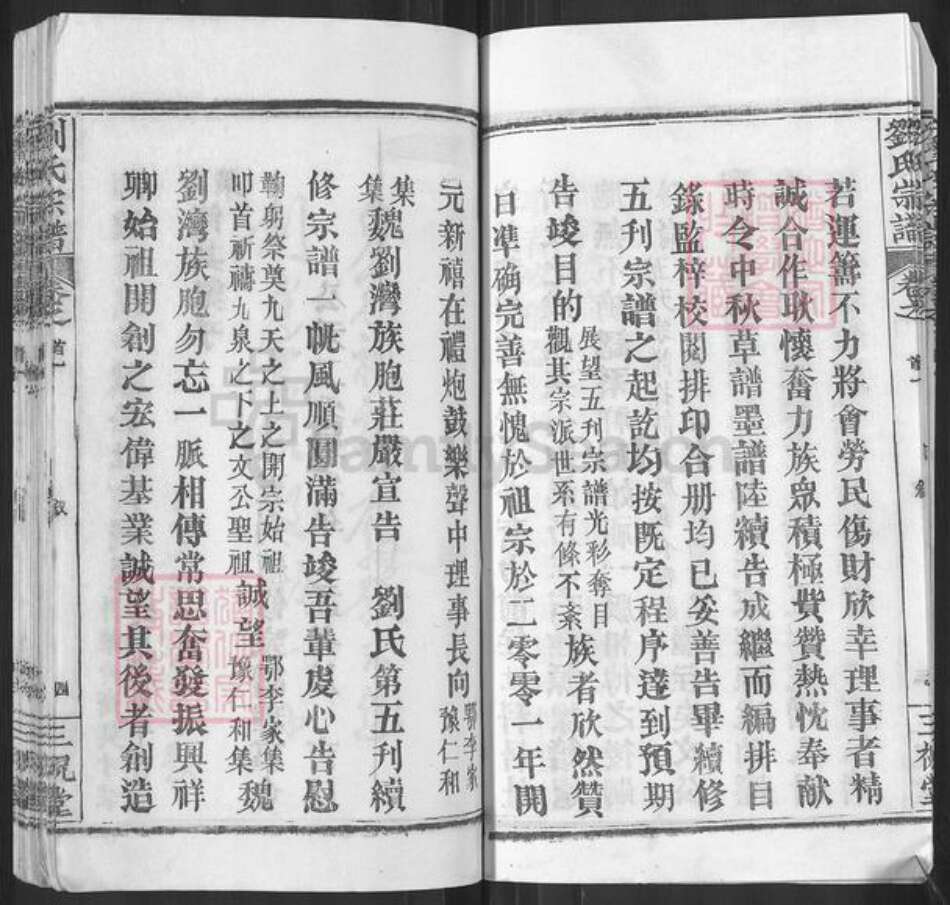 劉氏宗譜
卷之首一
三槐堂
若運籌不力將會勞民傷財欣幸理事者精
誠合作耿懷奮力族眾積極貲贊熱忱奉獻
時令中秋草譜墨譜陸續告成繼而編排目
錄監梓校閱排印合册均已妥善告畢續修
五刋宗譜之起訖均按既定程序達到預期
告竣目的展望五刋宗譜光彩奪目觀其宗派世系有條不紊族者欣然贊
日準确完善無愧於祖宗於二零零一年開
元新禧在禮炮鼓樂聲中理事長向鄂李家集豫仁和集
魏劉灣族胞莊嚴宣告 劉氏第五刋續
修宗譜一帆風順圓滿告竣吾輩虔心告慰
鞠躬祭奠九天之上之開宗始祖叩首祈禱九泉之下之文公聖祖誠望鄂李家集豫仁和集魏
劉灣族胞勿忘一脈相傳常思奮發振興祥
卿始祖開創之宏偉基業誠望其後者創造
劉氏宗譜
卷之首一
四
三槐堂